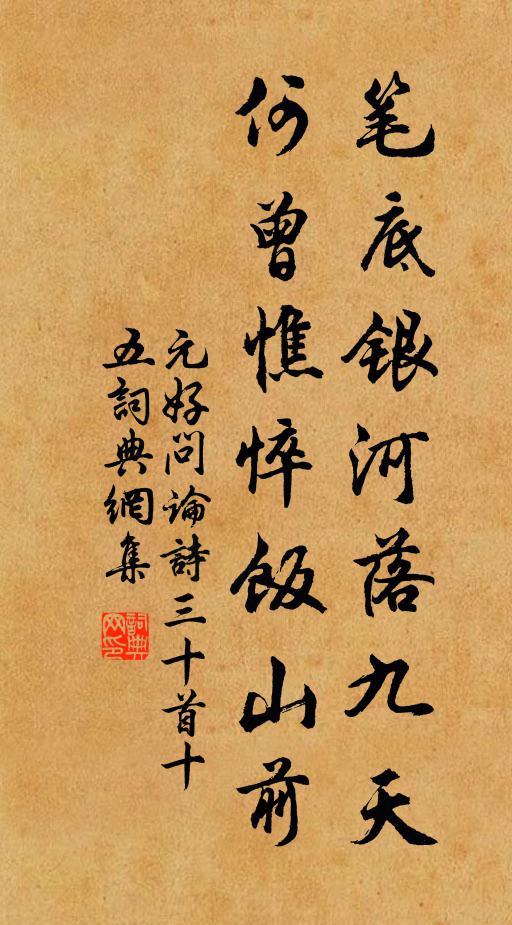 笔底银河落九天
何曾憔悴饭山前
元好问论詩三十首十
五詞典網集
詞典网印